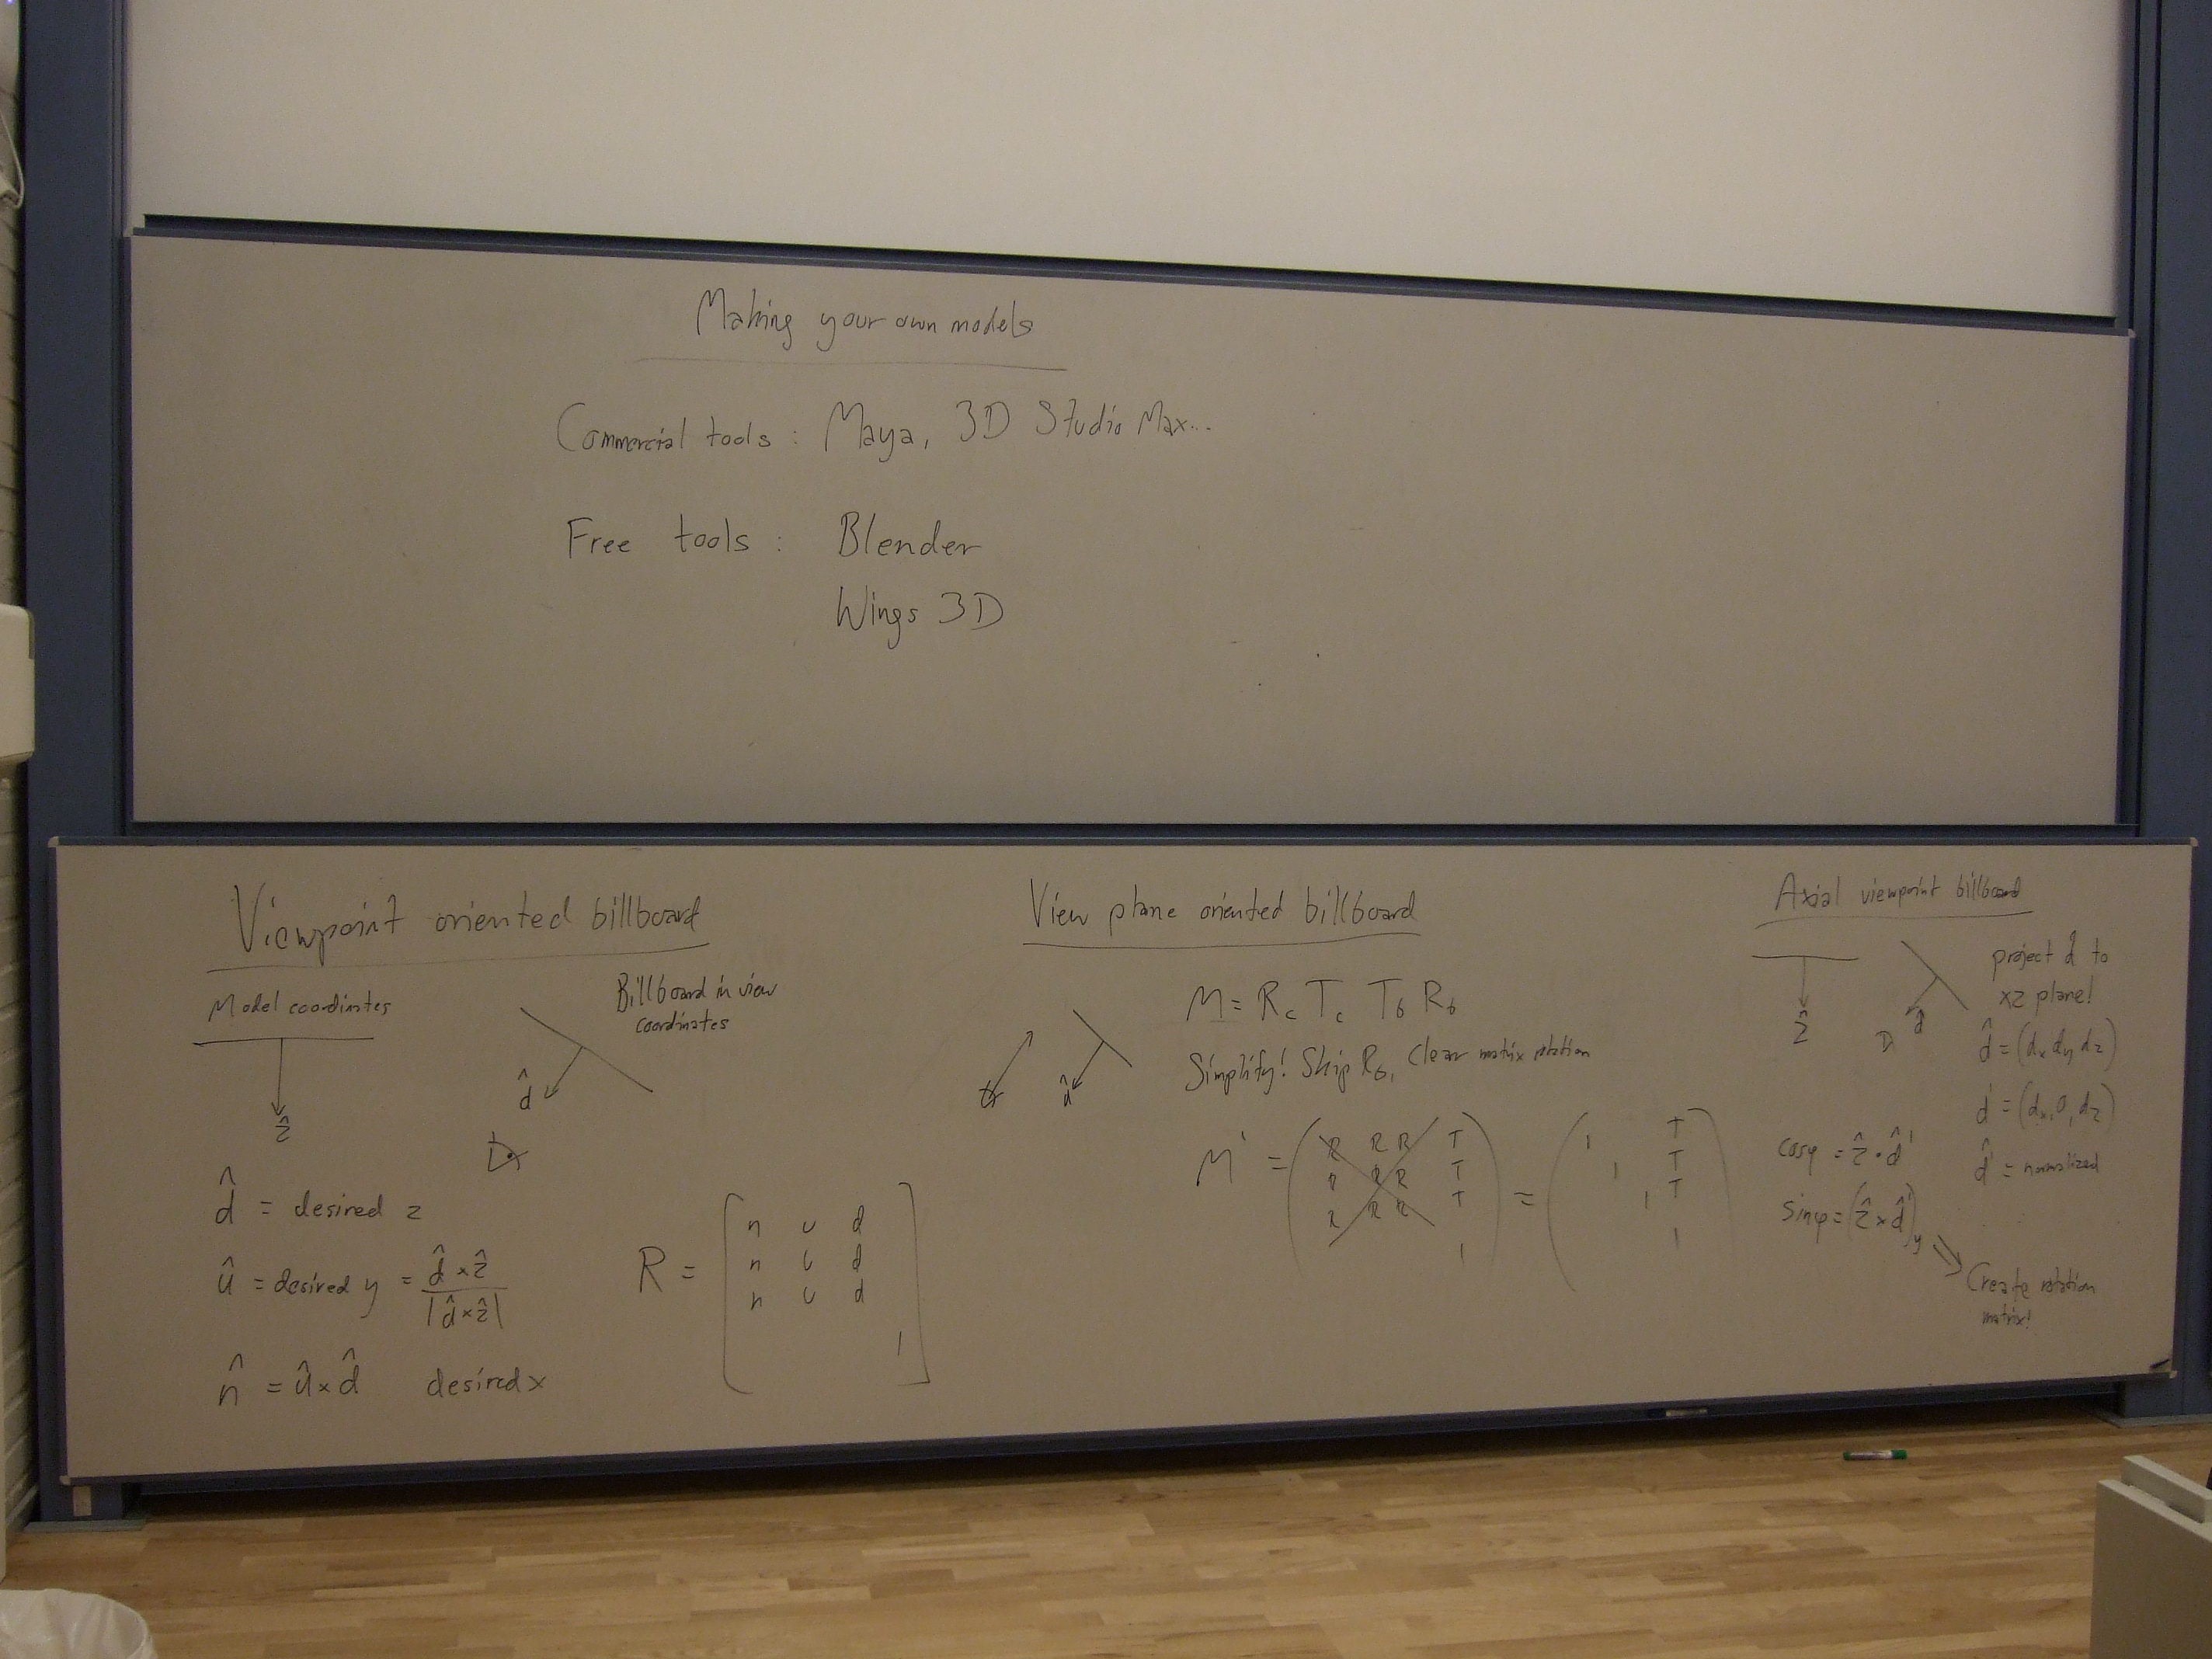 Making your own models
Commercial tools : Maya, 3D Studio Max...
Free tools : Blender
Wings 3D
Viewpoint oriented billboard
Model coordinates
Billboard in view
coordinates
ẑ
d̂
d̂ = desired z
û = desired y = d̂ × ẑ / |d̂ × ẑ|
n̂ = û × d̂ desired x
R =
n u d
n u d
n u d
1
View plane oriented billboard
M = Rc Tc Tb Rb
Simplify! Skip Rb, Clear matrix rotation
n̂
M' =
R R R T
R R R T
R R R T
1
=
1 T
1 T
1 T
1
Axial viewpoint billboard
ẑ
d̂
project d̂ to
xz plane!
d̂ = (dx dy dz)
d' = (dx, 0, dz)
d̂' = normalized
cosφ = ẑ · d̂'
sinφ = (ẑ × d̂')y
⇒ Create rotation
matrix!